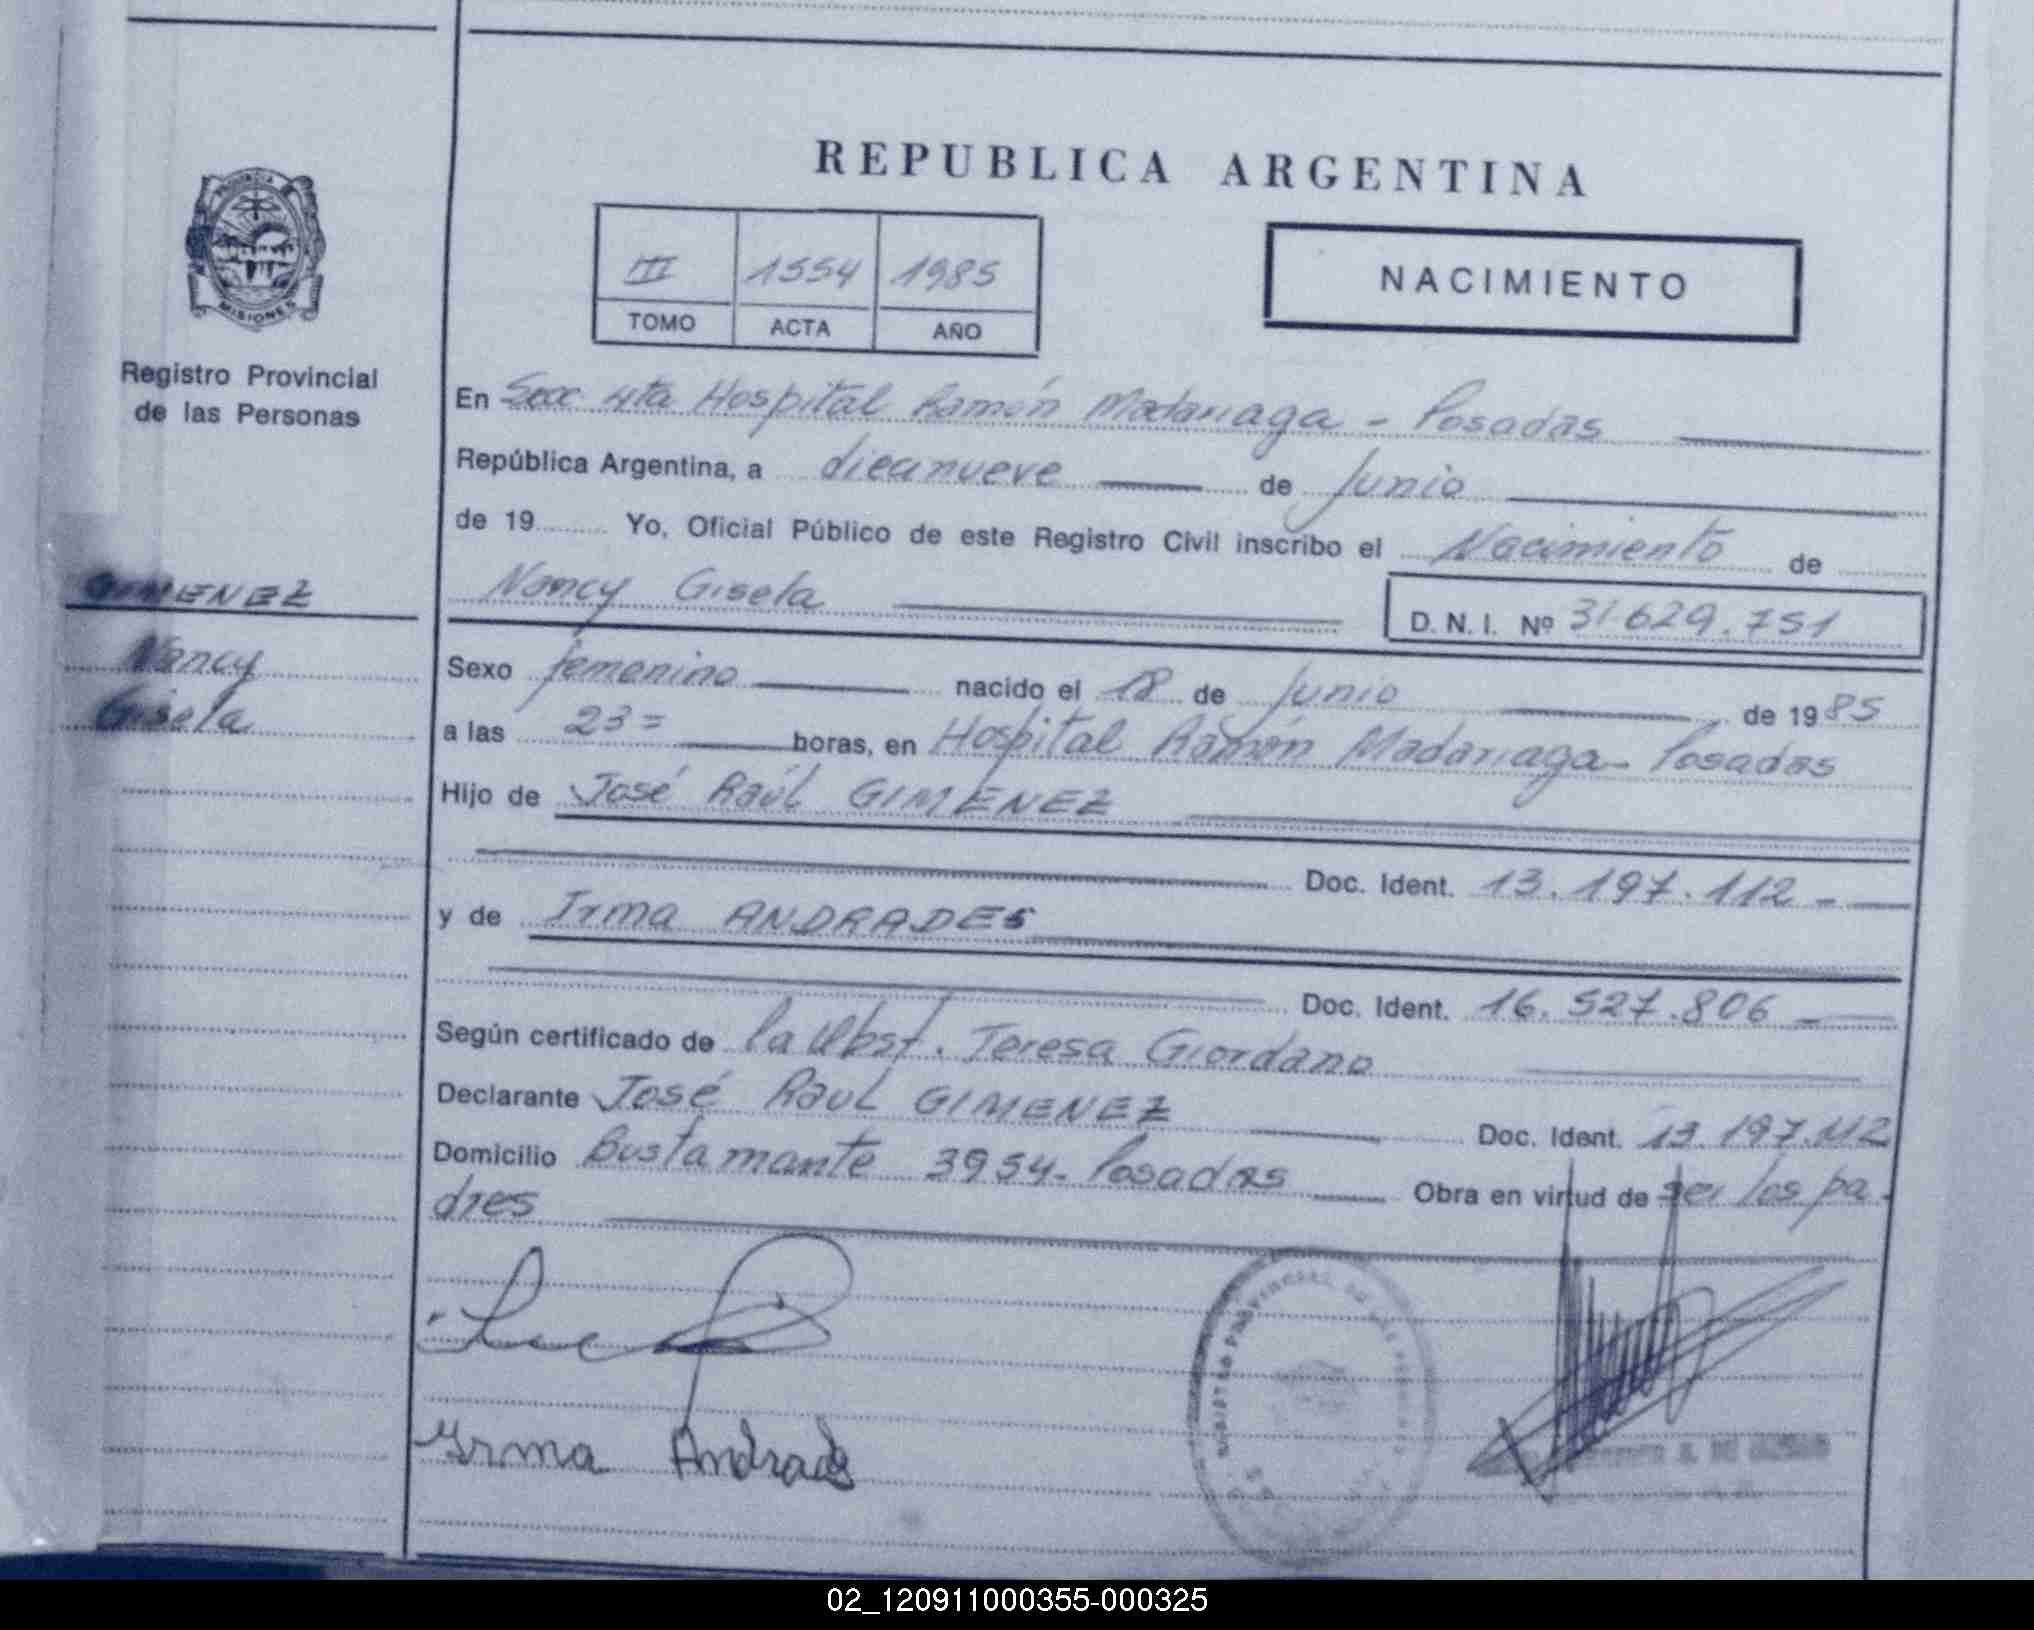 REPUBLICA ARGENTINA
PROVINCIA
MISIONES
Registro Provincial
de las Personas
III 1554 1985
TOMO ACTA AÑO
NACIMIENTO
En Secc 4ta Hospital Ramón Madariaga - Posadas
República Argentina, a diecinueve de Junio
de 19 Yo, Oficial Público de este Registro Civil inscribo el Nacimiento de
Nancy Gisela
D. N. I. Nº 31.629.751
GIMENEZ
Nancy
Gisela
Sexo femenino nacido el 18 de Junio de 1985
a las 23= horas, en Hospital Ramón Madariaga - Posadas
Hijo de José Raúl GIMENEZ
Doc. Ident. 13.197.112 -
y de Irma ANDRADES
Doc. Ident. 16.527.806 -
Según certificado de la Obst. Teresa Giordano
Declarante José Raul GIMENEZ Doc. Ident. 13.197.112
Domicilio Bustamante 3954 - Posadas Obra en virtud de ser los pa-
dres
Irma Andrade
REGISTRO PROVINCIAL DE LAS PERSONAS
02_120911000355-000325